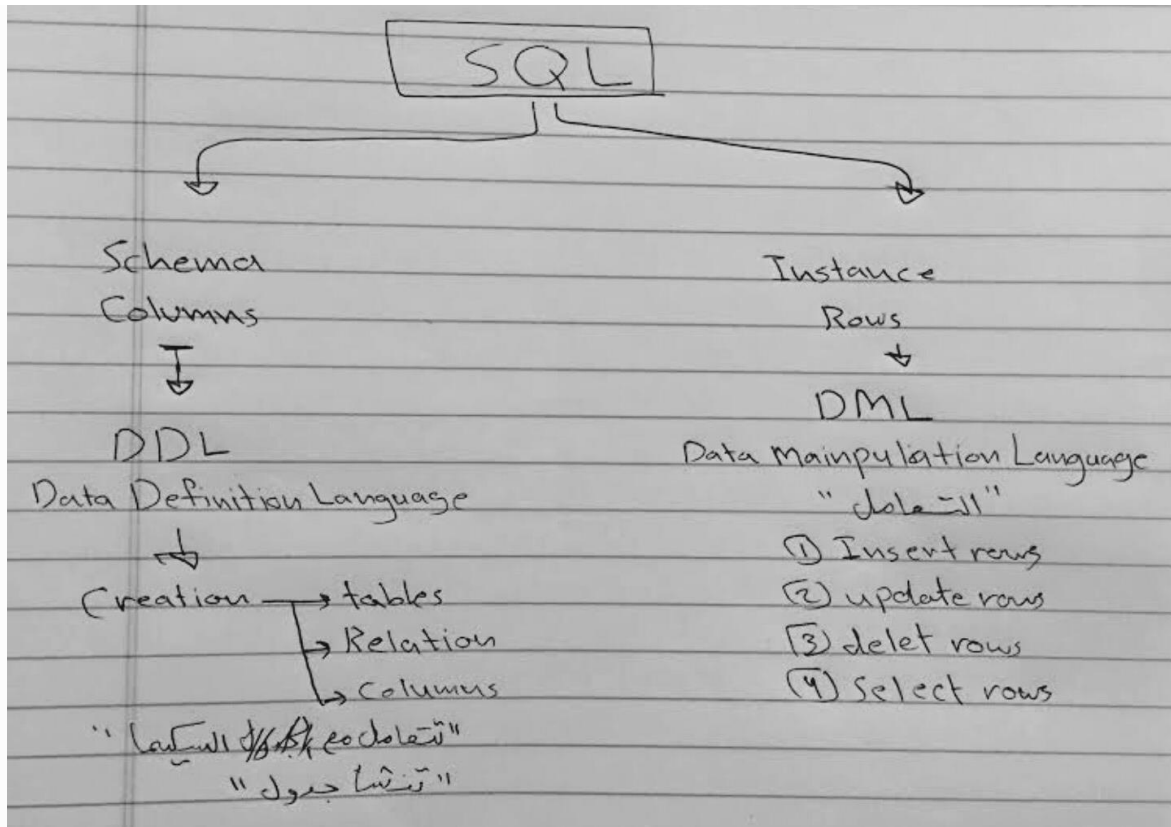 SQL
Schema
Columns
DDL
Data Definition Language
Creation
tables
Relation
Columns
"تتعامل مع السكيما"
"تنشأ جدول"
Instance
Rows
DML
Data Mainpulation Language
"التعامل"
① Insert rows
② update rows
③ delet rows
④ Select rows